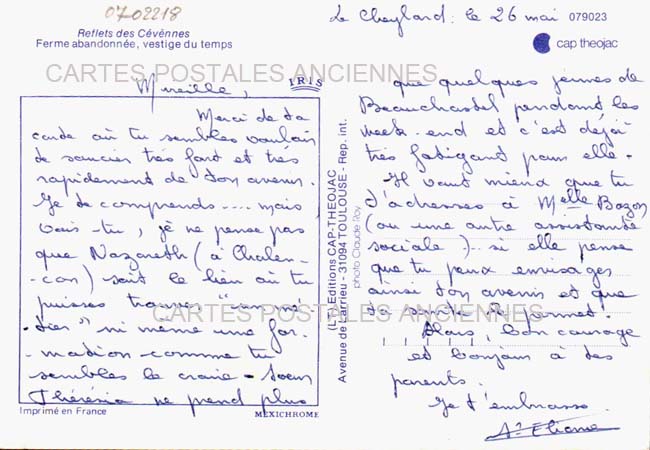 0702218
Reflets des Cévènnes
Ferme abandonnée, vestige du temps
CARTES POSTALES ANCIENNES
IRIS
Mireille,
Merci de ta
carte où tu sembles vouloir
te soucier très fort et très
rapidement de ton avenir.
Je te comprends.... mais,
vois-tu, je ne pense pas
que Nazareth (à Chalen-
con) soit le lieu où tu
puisses trouver "un mé-
tier" ni même une for-
mation comme tu
sembles le croire - Soeur
Thérésia ne prend plus
Imprimé en France
MEXICHROME
(L") Editions CAP-THEOJAC
Avenue de Larrieu - 31094 TOULOUSE - Rep. int.
photo Claude Roy
Le Cheylard. le 26 mai
079023
cap theojac
que quelques jeunes de
Beauchastel pendant les
week-end et c'est déjà
très fatigant pour elle -
Il vaut mieux que tu
t'adresses à Melle Bozon
(ou une autre assistante
sociale).. si elle pense
que tu peux envisager
ainsi ton avenir et que
ta santé le permet.
CARTES POSTALES ANCIENNES
Alors, bon courage
et bonjour à tes
parents.
Je t'embrasse.
Sr Eliane